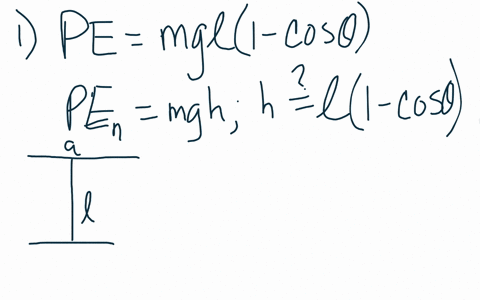 1) PE = mgl(1-cosθ)
PEₙ = mgh; h ≟ l(1-cosθ)
a
l